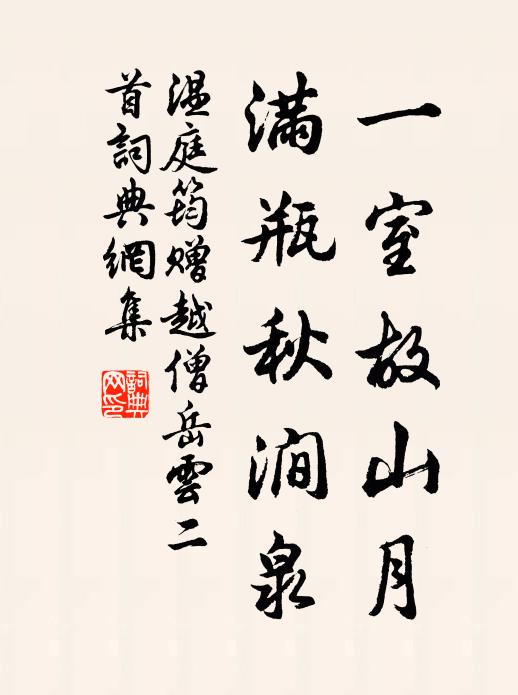 一室故山月
滿瓶秋澗泉
温庭筠赠越僧岳雲二
首詞典網集
詞典
网印